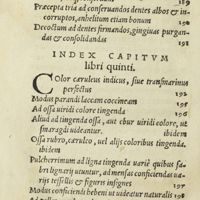 189
Præcepta tria ad conseruandos dentes albos & in-
corruptos, anhelitum etiam bonum 190
Decoctum ad dentes firmandos, gingiuas purgan-
das & consolidandas 191
INDEX CAPITVM
libri quinti.
Color cæruleus indicus, siue transmarinus
perfectus 192
Modus parandi laccam coccineam 195
Ad ossa uiridi colore tingenda
Aliud ad tingenda ossa, aut ebur uiridi colore, ut
smaragdi uideantur. ibidem
Ossa rubro, cæruleo, uel alijs coloribus tingenda.
ibidem
Pulcherrimum ad ligna tingenda uarie quibus fa-
bri lignarij utuntur, ad mensas conficiendas ua-
rijs tessellis & figuris insignes 197
Modus conficiendi hebeni ut uideatur naturalis 198